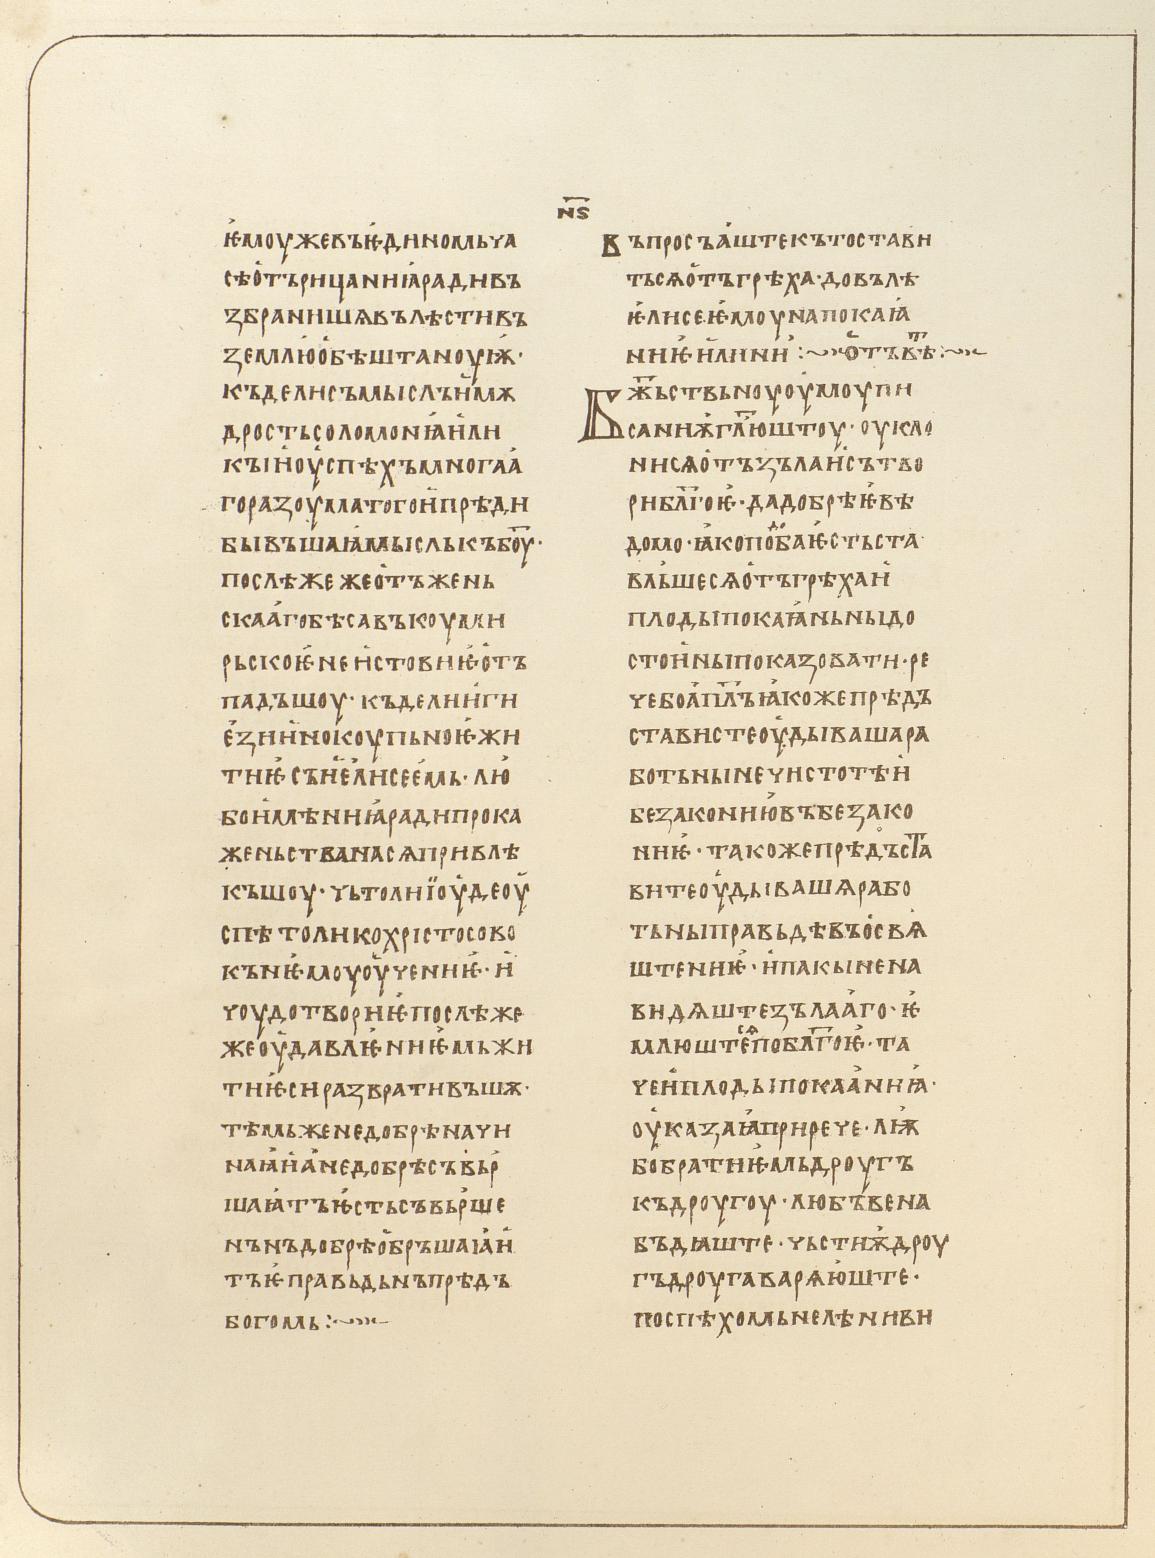 н҃ѕ
ѥмоужевъѥдиномьча
сѣотърицаниꙗрадивъ
збранишѧвълѣстивъ
землюобѣштаноуѭ·
къделисъмыслъимѫ
дростьсоломониꙗили
къіиоуспѣхъмногаа
горазоуматогоипрѣди
бывъшаꙗмыслькъбо҃у·
послѣжежеотъжень
скаагобѣсавъкоумири
рьскоѥнеистовиѥотъ
падъшоу·къделииги
езиинокоупьноѥжи
тиѥсъиелисеемь·лю
боимѣниꙗрадипрока
женьстванасѧпривлѣ
къшоу·чьтолиїоудеоу
спѣтоликохрістосово
кънѥмоуоучениѥ·и
чоудотвориѥпослѣже
жеоудавлѥниѥмьжи
тиѥсиразвративъшѫ·
тѣмьженедобрѣначи
наꙗианедобрѣсъвьр
шаꙗтъѥстьсъвьрше
нънъдобрѣобръшаꙗи
тъѥправьдьнъпрѣдъ
богомь:~
Въпросъаштекътостави
тьсѧотъгрѣха·довълѣ
ѥлисеѥмоунапокаꙗ
ниѥилини:~отъвѣ҃:~
Бж҃ьствьноуоумоупи
саниѭгл҃юштоу·оукло
нисѧотъзълаисътво
рибл҃гоѥ·дадобрѣѥвѣ
домо·ꙗкоподобаѥстьста
вльшесѧотъгрѣхаи
плодыпокаꙗньныдо
стоиныпоказовати·ре
чебоап҃лъꙗкожепрѣдъ
стависте оудывашара
ботьнынечистотѣи
безакониювъбезако
ниѥ·такожепрѣдъст҃а
витеоудывашѧрабо
тьныправьдѣвъосвѧ
штениѥ·ипакынена
видѧштезълааго·ѥ
млюштеісѧпобл҃гоѥ·та
чеиплодыпокааниꙗ·
оуказаꙗприрече·лѭ
бобратиѥмьдроугъ
къдроугоу·любъвена
въдꙗште·чьстиѭдроу
гъдроугаварѧюште·
поспѣхомьнелѣниви